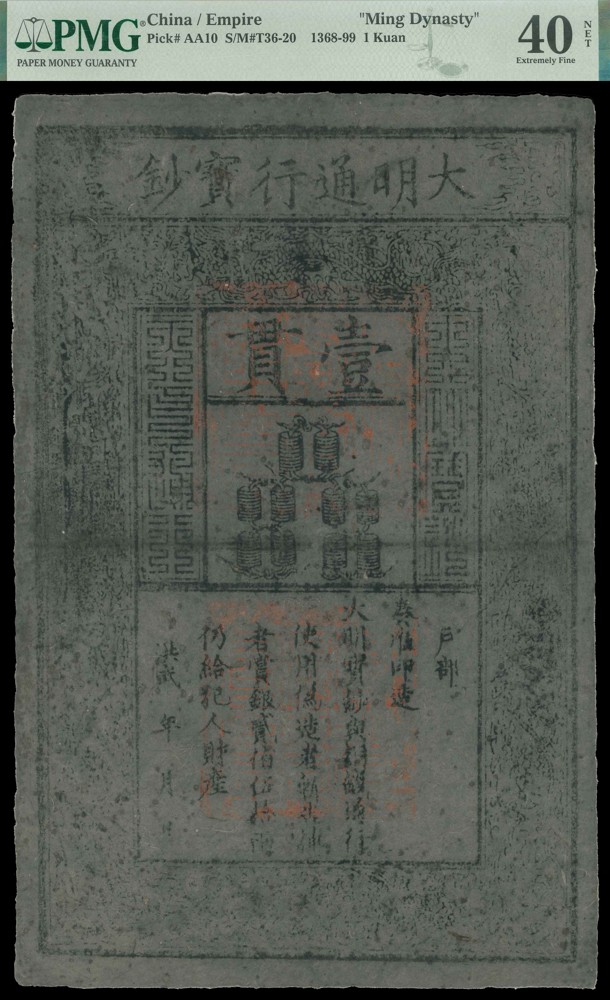 PMG
PAPER MONEY GUARANTY
China / Empire "Ming Dynasty"
Pick# AA10 S/M#T36-20 1368-99 1 Kuan
40 NET
Extremely Fine
大明通行寶鈔
壹貫
戶部
奏准印造
大明寶鈔與銅錢通行
使用偽造者斬告捕
者賞銀貳佰伍拾兩
仍給犯人財產
洪武 年 月 日